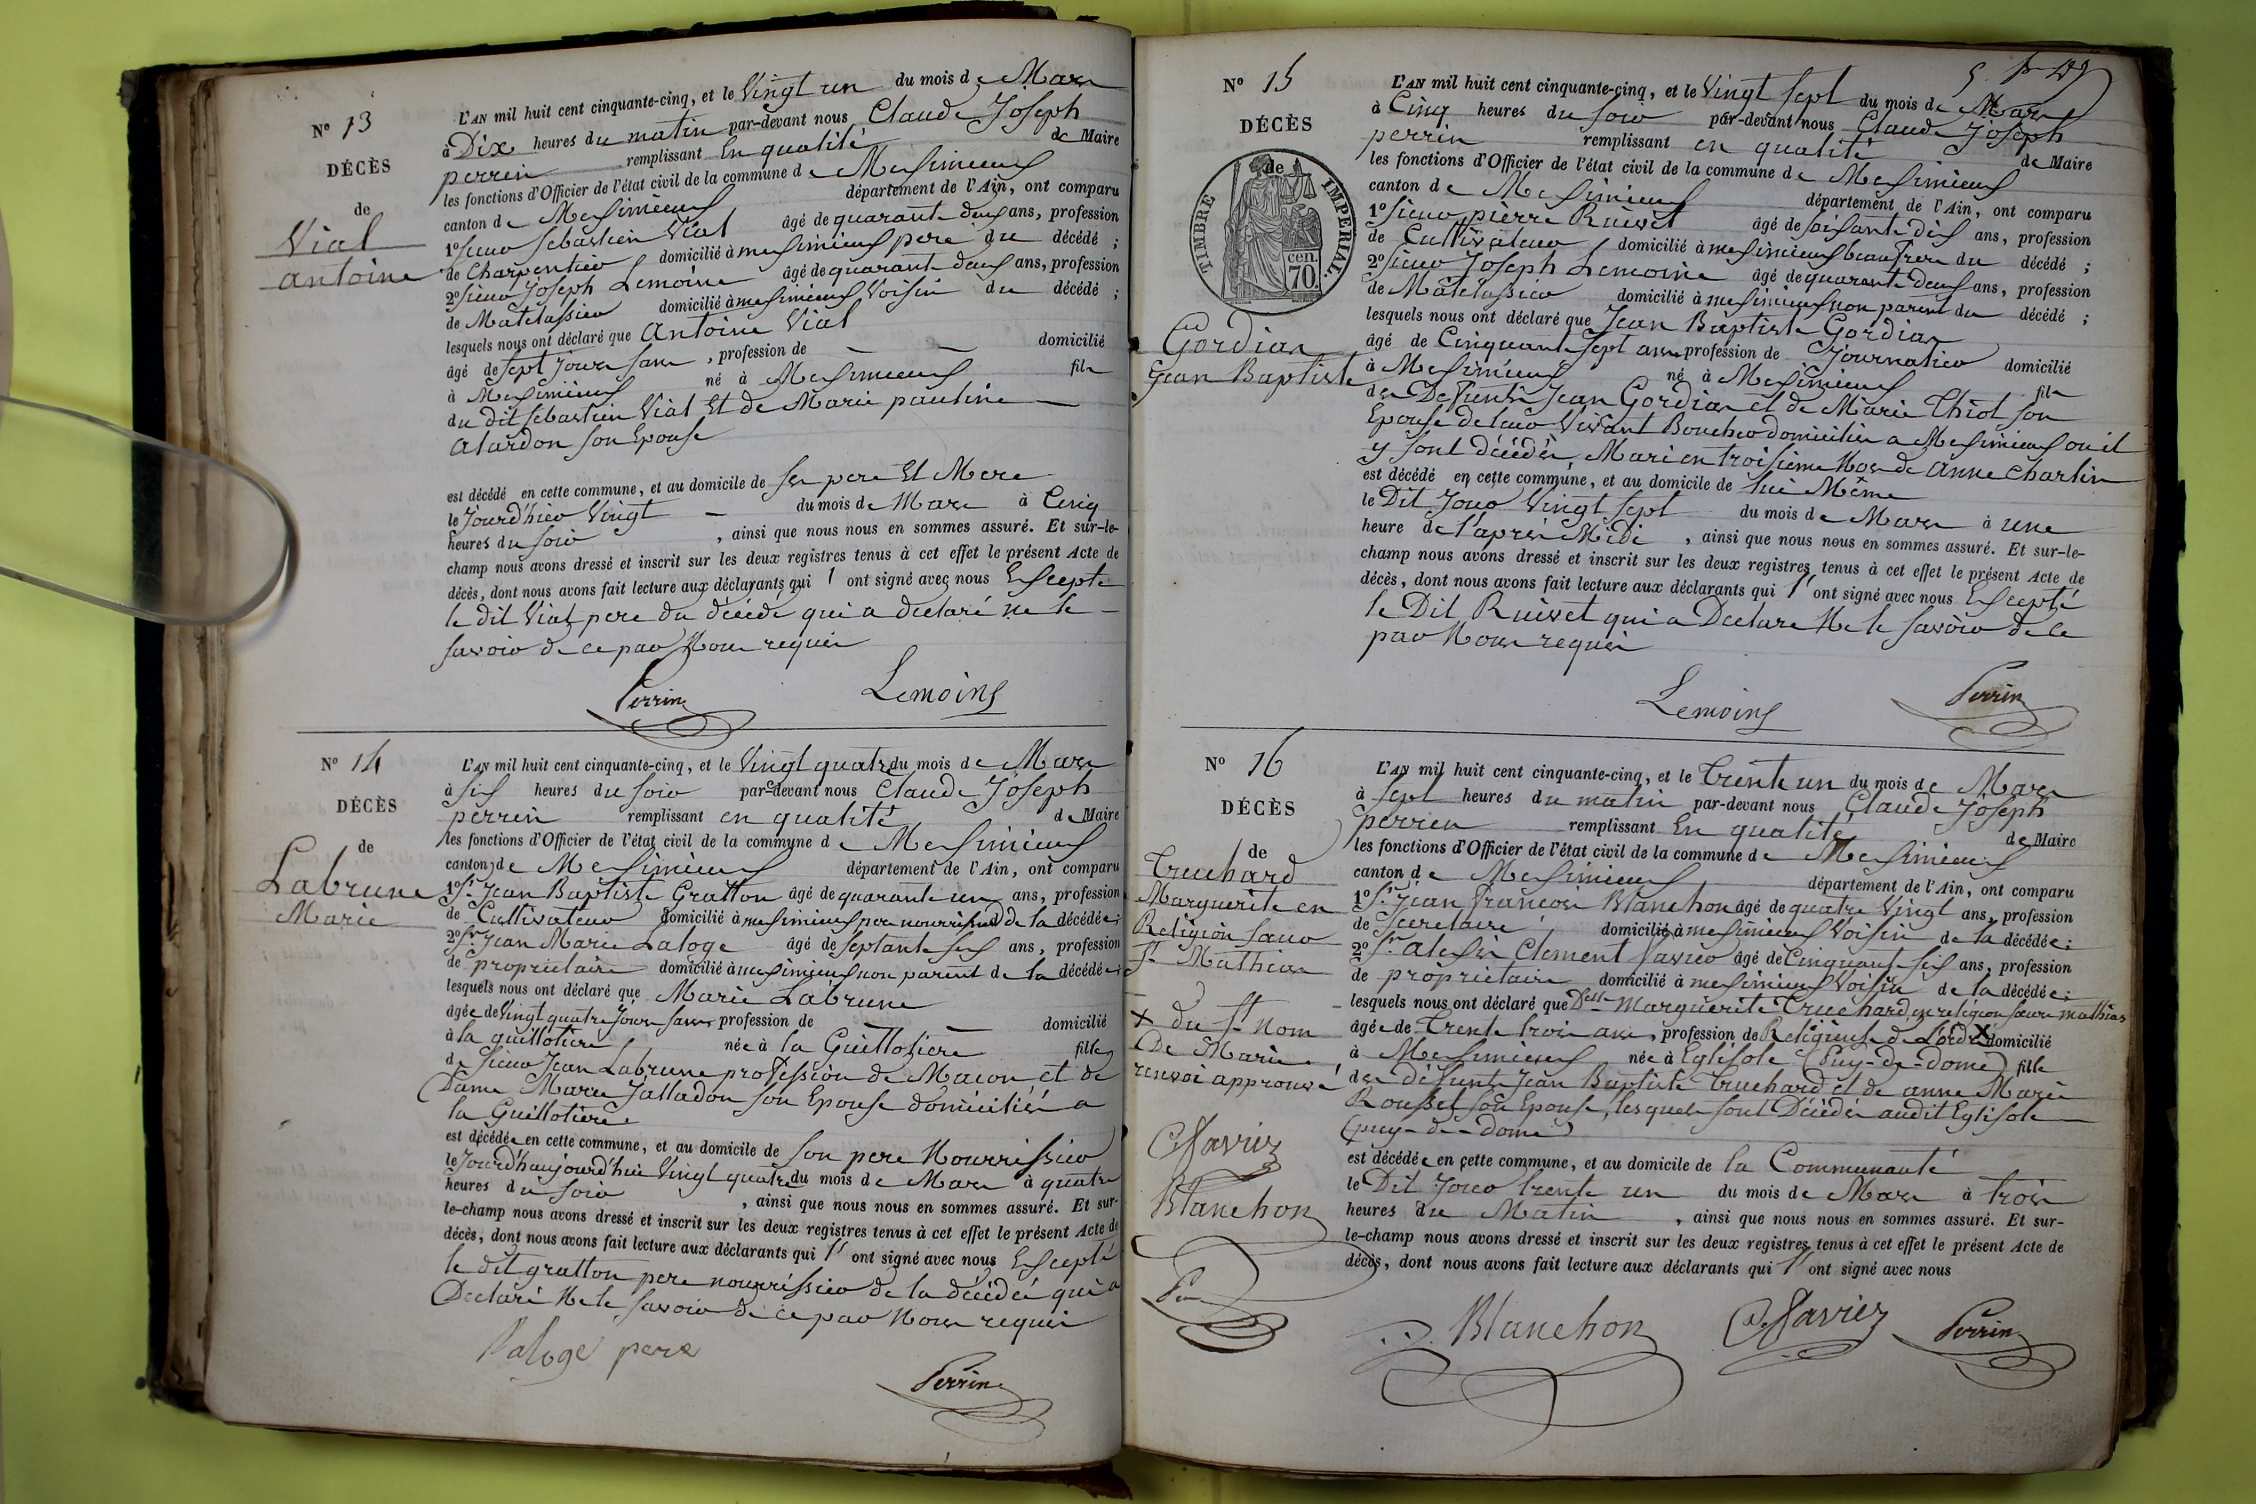 Nº 13
DÉCÈS
de
Vial
antoine
L'AN mil huit cent cinquante-cinq, et le Vingt un du mois de Mars
à Dix heures du matin par-devant nous Claude Joseph
perrin remplissant En qualité de Maire
les fonctions d'Officier de l'état civil de la commune de Meximieux
canton de Meximieux département de l'Ain, ont comparu
1º Sieur Sebastien Vial âgé de quarante deux ans, profession
de Charpentier domicilié à meximieux pere du décédé ;
2º Sieur Joseph Lemoine âgé de quarante deux ans, profession
de Matelassier domicilié à meximieux Voisin du décédé ;
lesquels nous ont déclaré que Antoine Vial
âgé de sept Jours sans , profession de — — domicilié
à Meximieux né à Meximieux fils
du dit Sebastien Vial Et de Marie pauline —
alardon son Epouse
est décédé en cette commune, et au domicile de ses pere Et Mere
le Jourd'hier Vingt — du mois de Mars à Cinq
heures du soir , ainsi que nous nous en sommes assuré. Et sur-le-
champ nous avons dressé et inscrit sur les deux registres tenus à cet effet le présent Acte de
décès, dont nous avons fait lecture aux déclarants qui l' ont signé avec nous Excepte
le dit Vial pere du décédé qui a declaré ne le —
savoir de ce par Nous requis
Perrin Lemoine
Nº 14
DÉCÈS
de
Labrune
Marie
L'AN mil huit cent cinquante-cinq, et le Vingt quatre du mois de Mars
à six heures du soir par-devant nous Claude Joseph
perrin remplissant en qualité de Maire
les fonctions d'Officier de l'état civil de la commune de Meximieux
canton de Meximieux département de l'Ain, ont comparu
1º Sr. Jean Baptiste Gratton âgé de quarante un ans, profession
de Cultivateur domicilié à meximieux pere nourrissier de la décédée ;
2º Sr. Jean Marie Laloge âgé de septante six ans, profession
de proprietaire domicilié à meximieux non parent de la décédée ;
lesquels nous ont déclaré que Marie Labrune
âgée de Vingt quatre Jours sans profession de — domicilié
à la guillotiere née à la Guillotiere fille
de Sieur Jean Labrune profession de Macon et de
Dame Marie Jalladon son Epouse domiciliés a
la Guillotiere
est décédée en cette commune, et au domicile de son pere Nourrissier
le Jourd'haujourd'hui Vingt quatre du mois de Mars à quatre
heures du soir , ainsi que nous nous en sommes assuré. Et sur-
le-champ nous avons dressé et inscrit sur les deux registres tenus à cet effet le présent Acte de
décès, dont nous avons fait lecture aux déclarants qui l' ont signé avec nous Excepté
le dit gratton pere nourrissier de la décédé qui a
Declaré Ne le savoir de ce par Nous requis
Laloge pere
Perrin
Nº 15
DÉCÈS
de
TIMBRE IMPÉRIAL.
70 cen.
Gordian
Jean Baptiste
L'AN mil huit cent cinquante-cinq, et le Vingt sept du mois de Mars
à Cinq heures du soir par-devant nous Claude Joseph
perrin remplissant en qualité de Maire
les fonctions d'Officier de l'état civil de la commune de Meximieux
canton de Meximieux département de l'Ain, ont comparu
1º Sieur pierre Ruivet âgé de soixante dix ans, profession
de Cultivateur domicilié à meximieux beau frere du décédé ;
2º Sieur Joseph Lemoine âgé de quarante deux ans, profession
de Matelassier domicilié à meximieux non parent du décédé ;
lesquels nous ont déclaré que Jean Baptiste Gordian
âgé de Cinquante sept ans profession de Journalier domicilié
à Meximieux né à Meximieux fils
des Defunts Jean Gordian et de Marie Thiol son
Epouse de leur Vivant Boucher domiciliés a Meximieux ou il
y sont décédés, Marie en troisième Nos de anne charlin
est décédé en cette commune, et au domicile de lui Même
le Dit Jour Vingt sept du mois de Mars à une
heure de l'après Midi , ainsi que nous nous en sommes assuré. Et sur-le-
champ nous avons dressé et inscrit sur les deux registres tenus à cet effet le présent Acte de
décès, dont nous avons fait lecture aux déclarants qui l' ont signé avec nous Excepté
le Dit Ruivet qui a Declare Ne le savoir de ce
par Nous requis
Lemoine Perrin
Nº 16
DÉCÈS
de
Truchard
Marguerite en
Religion sœur
St. Mathias
X du St. Nom
De Marie
renvoi approuvé
C. Xavier
Blanchon
L'AN mil huit cent cinquante-cinq, et le Trente un du mois de Mars
à sept heures du matin par-devant nous Claude Joseph
perrin remplissant En qualité de Maire
les fonctions d'Officier de l'état civil de la commune de Meximieux
canton de Meximieux département de l'Ain, ont comparu
1º Sr. jean francois Blanchon âgé de quatre Vingt ans, profession
de Secretaire domicilié à meximieux Voisin de la décédée ;
2º Sr. alexis Clement Xavier âgé de Cinquante six ans, profession
de proprietaire domicilié à meximieux Voisin de la décédée ;
lesquels nous ont déclaré que Delle Marguerite Truchard, en religion sœur mathias
âgée de Trente trois ans , profession de Religieuse de l'ordre X domicilié
à Meximieux née à Eglisole (Puy-de-dome) fille
des défunts Jean Baptiste Truchard et de anne Marie
Roussel son Epouse, lesquels sont Décédés audit Eglisole
(puy-de-dome)
est décédée en cette commune, et au domicile de la Communauté
le Dit Jour trente un du mois de Mars à trois
heures du Matin , ainsi que nous nous en sommes assuré. Et sur-
le-champ nous avons dressé et inscrit sur les deux registres tenus à cet effet le présent Acte de
décès, dont nous avons fait lecture aux déclarants qui l' ont signé avec nous
Blanchon C. Xavier Perrin